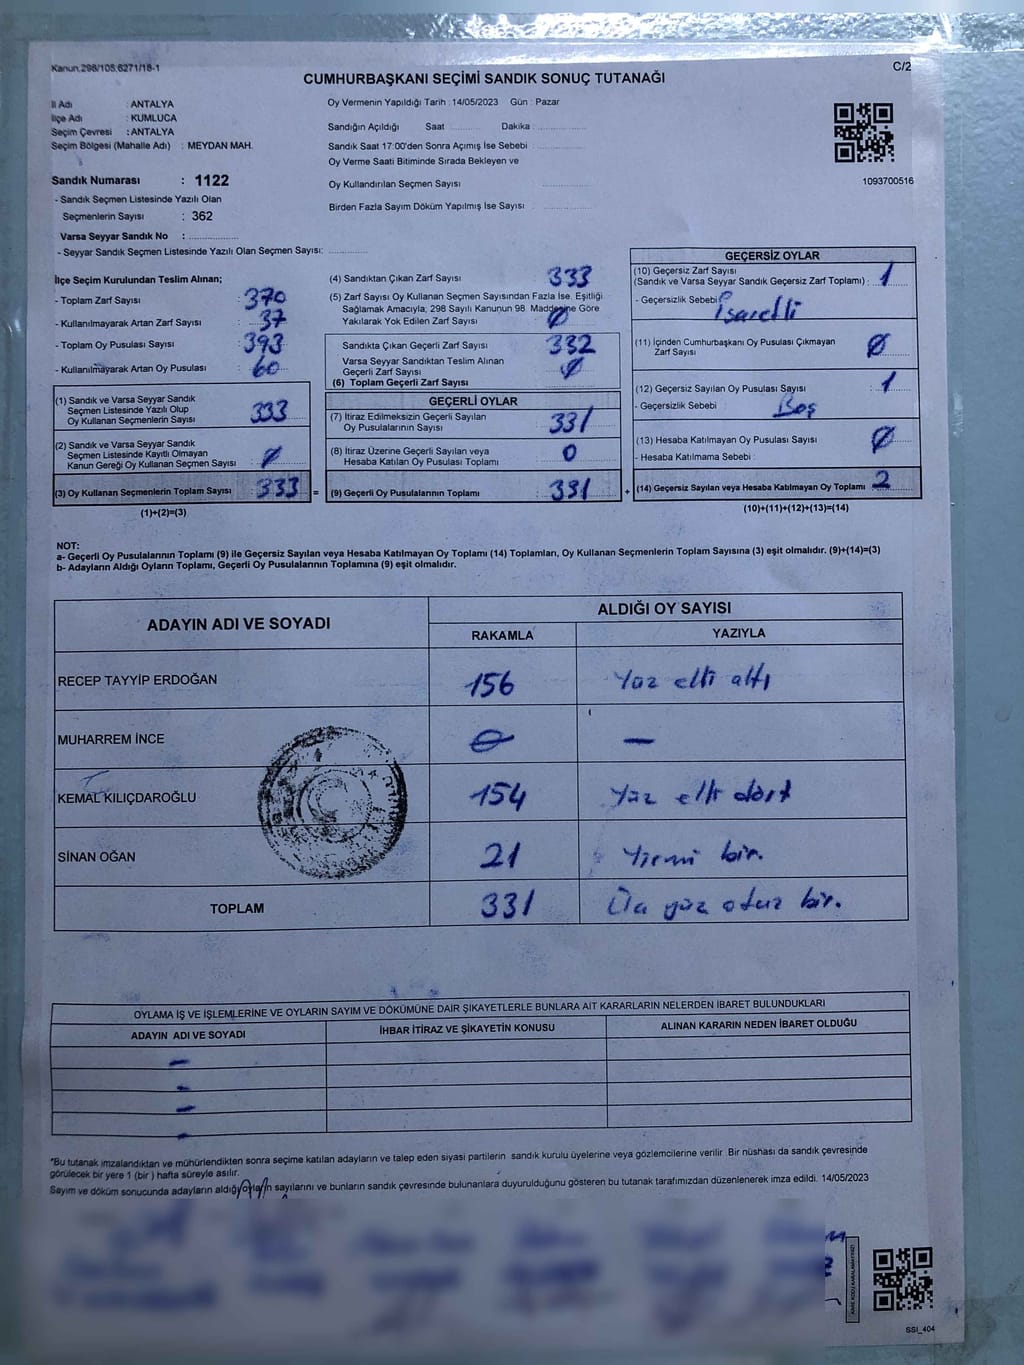 Kanun.298/105,6271/18-1
C/2
CUMHURBAŞKANI SEÇİMİ SANDIK SONUÇ TUTANAĞI
İl Adı : ANTALYA
İlçe Adı : KUMLUCA
Seçim Çevresi : ANTALYA
Seçim Bölgesi (Mahalle Adı) : MEYDAN MAH.
Sandık Numarası : 1122
- Sandık Seçmen Listesinde Yazılı Olan
Seçmenlerin Sayısı : 362
Varsa Seyyar Sandık No :
- Seyyar Sandık Seçmen Listesinde Yazılı Olan Seçmen Sayısı:
Oy Vermenin Yapıldığı Tarih : 14/05/2023 Gün : Pazar
Sandığın Açıldığı Saat Dakika :
Sandık Saat 17:00'den Sonra Açımış İse Sebebi :
Oy Verme Saati Bitiminde Sırada Bekleyen ve
Oy Kullandırılan Seçmen Sayısı
Birden Fazla Sayım Döküm Yapılmış İse Sayısı
1093700516
İlçe Seçim Kurulundan Teslim Alınan;
- Toplam Zarf Sayısı : 370
- Kullanılmayarak Artan Zarf Sayısı : 37
- Toplam Oy Pusulası Sayısı : 393
- Kullanılmayarak Artan Oy Pusulası : 60
(1) Sandık ve Varsa Seyyar Sandık
Seçmen Listesinde Yazılı Olup
Oy Kullanan Seçmenlerin Sayısı 333
(2) Sandık ve Varsa Seyyar Sandık
Seçmen Listesinde Kayıtlı Olmayan
Kanun Gereği Oy Kullanan Seçmen Sayısı Ø
(3) Oy Kullanan Seçmenlerin Toplam Sayısı 333 =
(1)+(2)=(3)
(4) Sandıktan Çıkan Zarf Sayısı 333
(5) Zarf Sayısı Oy Kullanan Seçmen Sayısından Fazla İse, Eşitliği
Sağlamak Amacıyla, 298 Sayılı Kanunun 98. Maddesine Göre
Yakılarak Yok Edilen Zarf Sayısı Ø
Sandıkta Çıkan Geçerli Zarf Sayısı 332
Varsa Seyyar Sandıktan Teslim Alınan
Geçerli Zarf Sayısı Ø
(6) Toplam Geçerli Zarf Sayısı
GEÇERLİ OYLAR
(7) İtiraz Edilmeksizin Geçerli Sayılan
Oy Pusulalarının Sayısı 331
(8) İtiraz Üzerine Geçerli Sayılan veya
Hesaba Katılan Oy Pusulası Toplamı 0
(9) Geçerli Oy Pusulalarının Toplamı 331 +
GEÇERSİZ OYLAR
(10) Geçersiz Zarf Sayısı
(Sandık ve Varsa Seyyar Sandık Geçersiz Zarf Toplamı) : 1
- Geçersizlik Sebebi : İşaretli
(11) İçinden Cumhurbaşkanı Oy Pusulası Çıkmayan
Zarf Sayısı Ø
(12) Geçersiz Sayılan Oy Pusulası Sayısı 1
- Geçersizlik Sebebi : Boş
(13) Hesaba Katılmayan Oy Pusulası Sayısı Ø
- Hesaba Katılmama Sebebi :
(14) Geçersiz Sayılan veya Hesaba Katılmayan Oy Toplamı 2
(10)+(11)+(12)+(13)=(14)
NOT:
a- Geçerli Oy Pusulalarının Toplamı (9) ile Geçersiz Sayılan veya Hesaba Katılmayan Oy Toplamı (14) Toplamları, Oy Kullanan Seçmenlerin Toplam Sayısına (3) eşit olmalıdır. (9)+(14)=(3)
b- Adayların Aldığı Oyların Toplamı, Geçerli Oy Pusulalarının Toplamına (9) eşit olmalıdır.
ADAYIN ADI VE SOYADI
ALDIĞI OY SAYISI
RAKAMLA YAZIYLA
RECEP TAYYİP ERDOĞAN 156 Yüz elli altı
MUHARREM İNCE Ø —
KEMAL KILIÇDAROĞLU 154 Yüz elli dört
SİNAN OĞAN 21 Yirmi bir.
TOPLAM 331 Üç yüz otuz bir.
OYLAMA İŞ VE İŞLEMLERİNE VE OYLARIN SAYIM VE DÖKÜMÜNE DAİR ŞİKAYETLERLE BUNLARA AİT KARARLARIN NELERDEN İBARET BULUNDUKLARI
ADAYIN ADI VE SOYADI İHBAR İTİRAZ VE ŞİKAYETİN KONUSU ALINAN KARARIN NEDEN İBARET OLDUĞU
—
—
—
—
*Bu tutanak imzalandıktan ve mühürlendikten sonra seçime katılan adayların ve talep eden siyasi partilerin sandık kurulu üyelerine veya gözlemcilerine verilir. Bir nüshası da sandık çevresinde
görülecek bir yere 1 (bir ) hafta süreyle asılır.
Sayım ve döküm sonucunda adayların aldığı oyların sayılarını ve bunların sandık çevresinde bulunanlara duyurulduğunu gösteren bu tutanak tarafımızdan düzenlenerek imza edildi. 14/05/2023
SSI_404